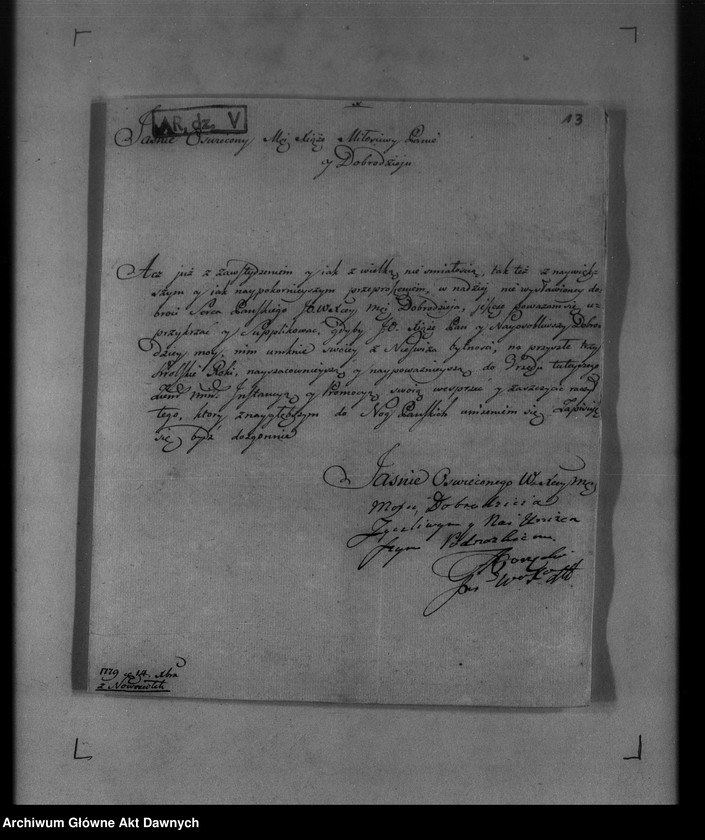 AR. dz. V
13
Jaśnie Oświecony Mój Xiąże Miłościwy Panie
y Dobrodzieju
Acz już z zawstydzeniem y jak z wielką nieśmiałością, tak też z naywięk-
szym y jak naypokornieyszym przeproszeniem, w nadziei nie wysławioney do-
broci Serca Pańskiego JO. WXcey Mci Dobrodzieja, jeszcze poważam się u-
przykrzać y Supplikować, gdyby JO. Xiąże Pan y Nayosobliwszy Dobro-
dziey moy, nim umknie swoiey z Nieświża bytności, na przyszłe trzy
Krolskie Roki, nayszacownieyszą y naypoważnieyszą do Urzędu tuteyszego
Instancyą y Promocyą swoią wesprzeć y zaszczycić raczył
tego, który z naygłębszym do Nog Pańskich uniżeniem się zapisuję
się bydź dozgonnie
Jaśnie Oświeconego WXcey Mci
Dobrodzieja
Życzliwym y Nay Uniżeń
szym Podnożkiem
1779 14. Xbra
z
Archiwum Główne Akt Dawnych